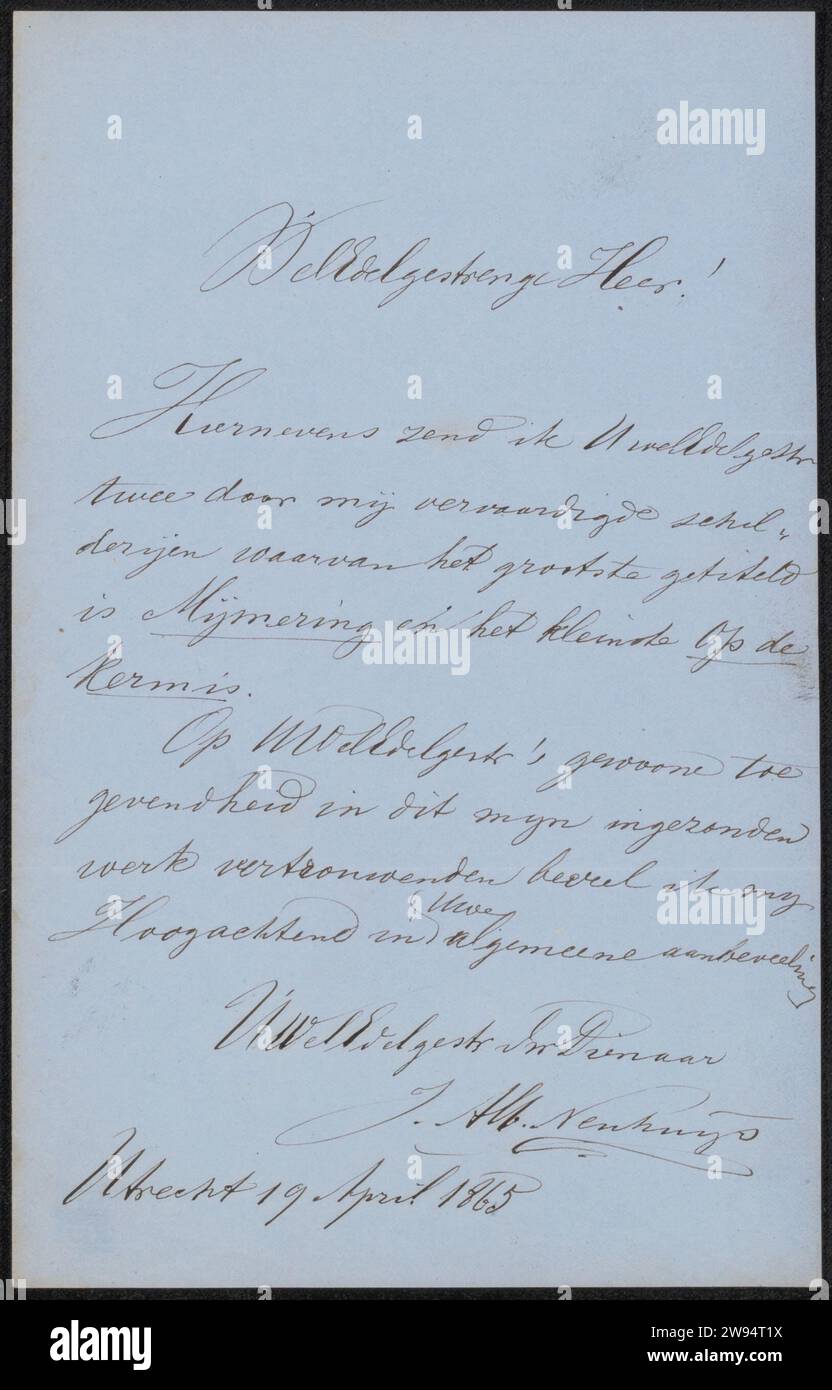 WelEdelgestrenge Heer!
Hiernevens zend ik UwelEdelgestr
twee door mij vervaardigde schil„
derijen waarvan het grootste getiteld
is Mijmering en het kleinste Op de
Kermis.
Op UWelEdelgestr's gewoone toe
gevendheid in dit mijn ingezonden
werk vertrouwenden beveel ik my
Hoogachtend in Uwe algemeene aanbeveeling
UWelEdelgestr Dw Dienaar
J. Alb. Neuhuijs
Utrecht 19 April 1865
alamy
Image ID: 2W94T1X
www.alamy.com